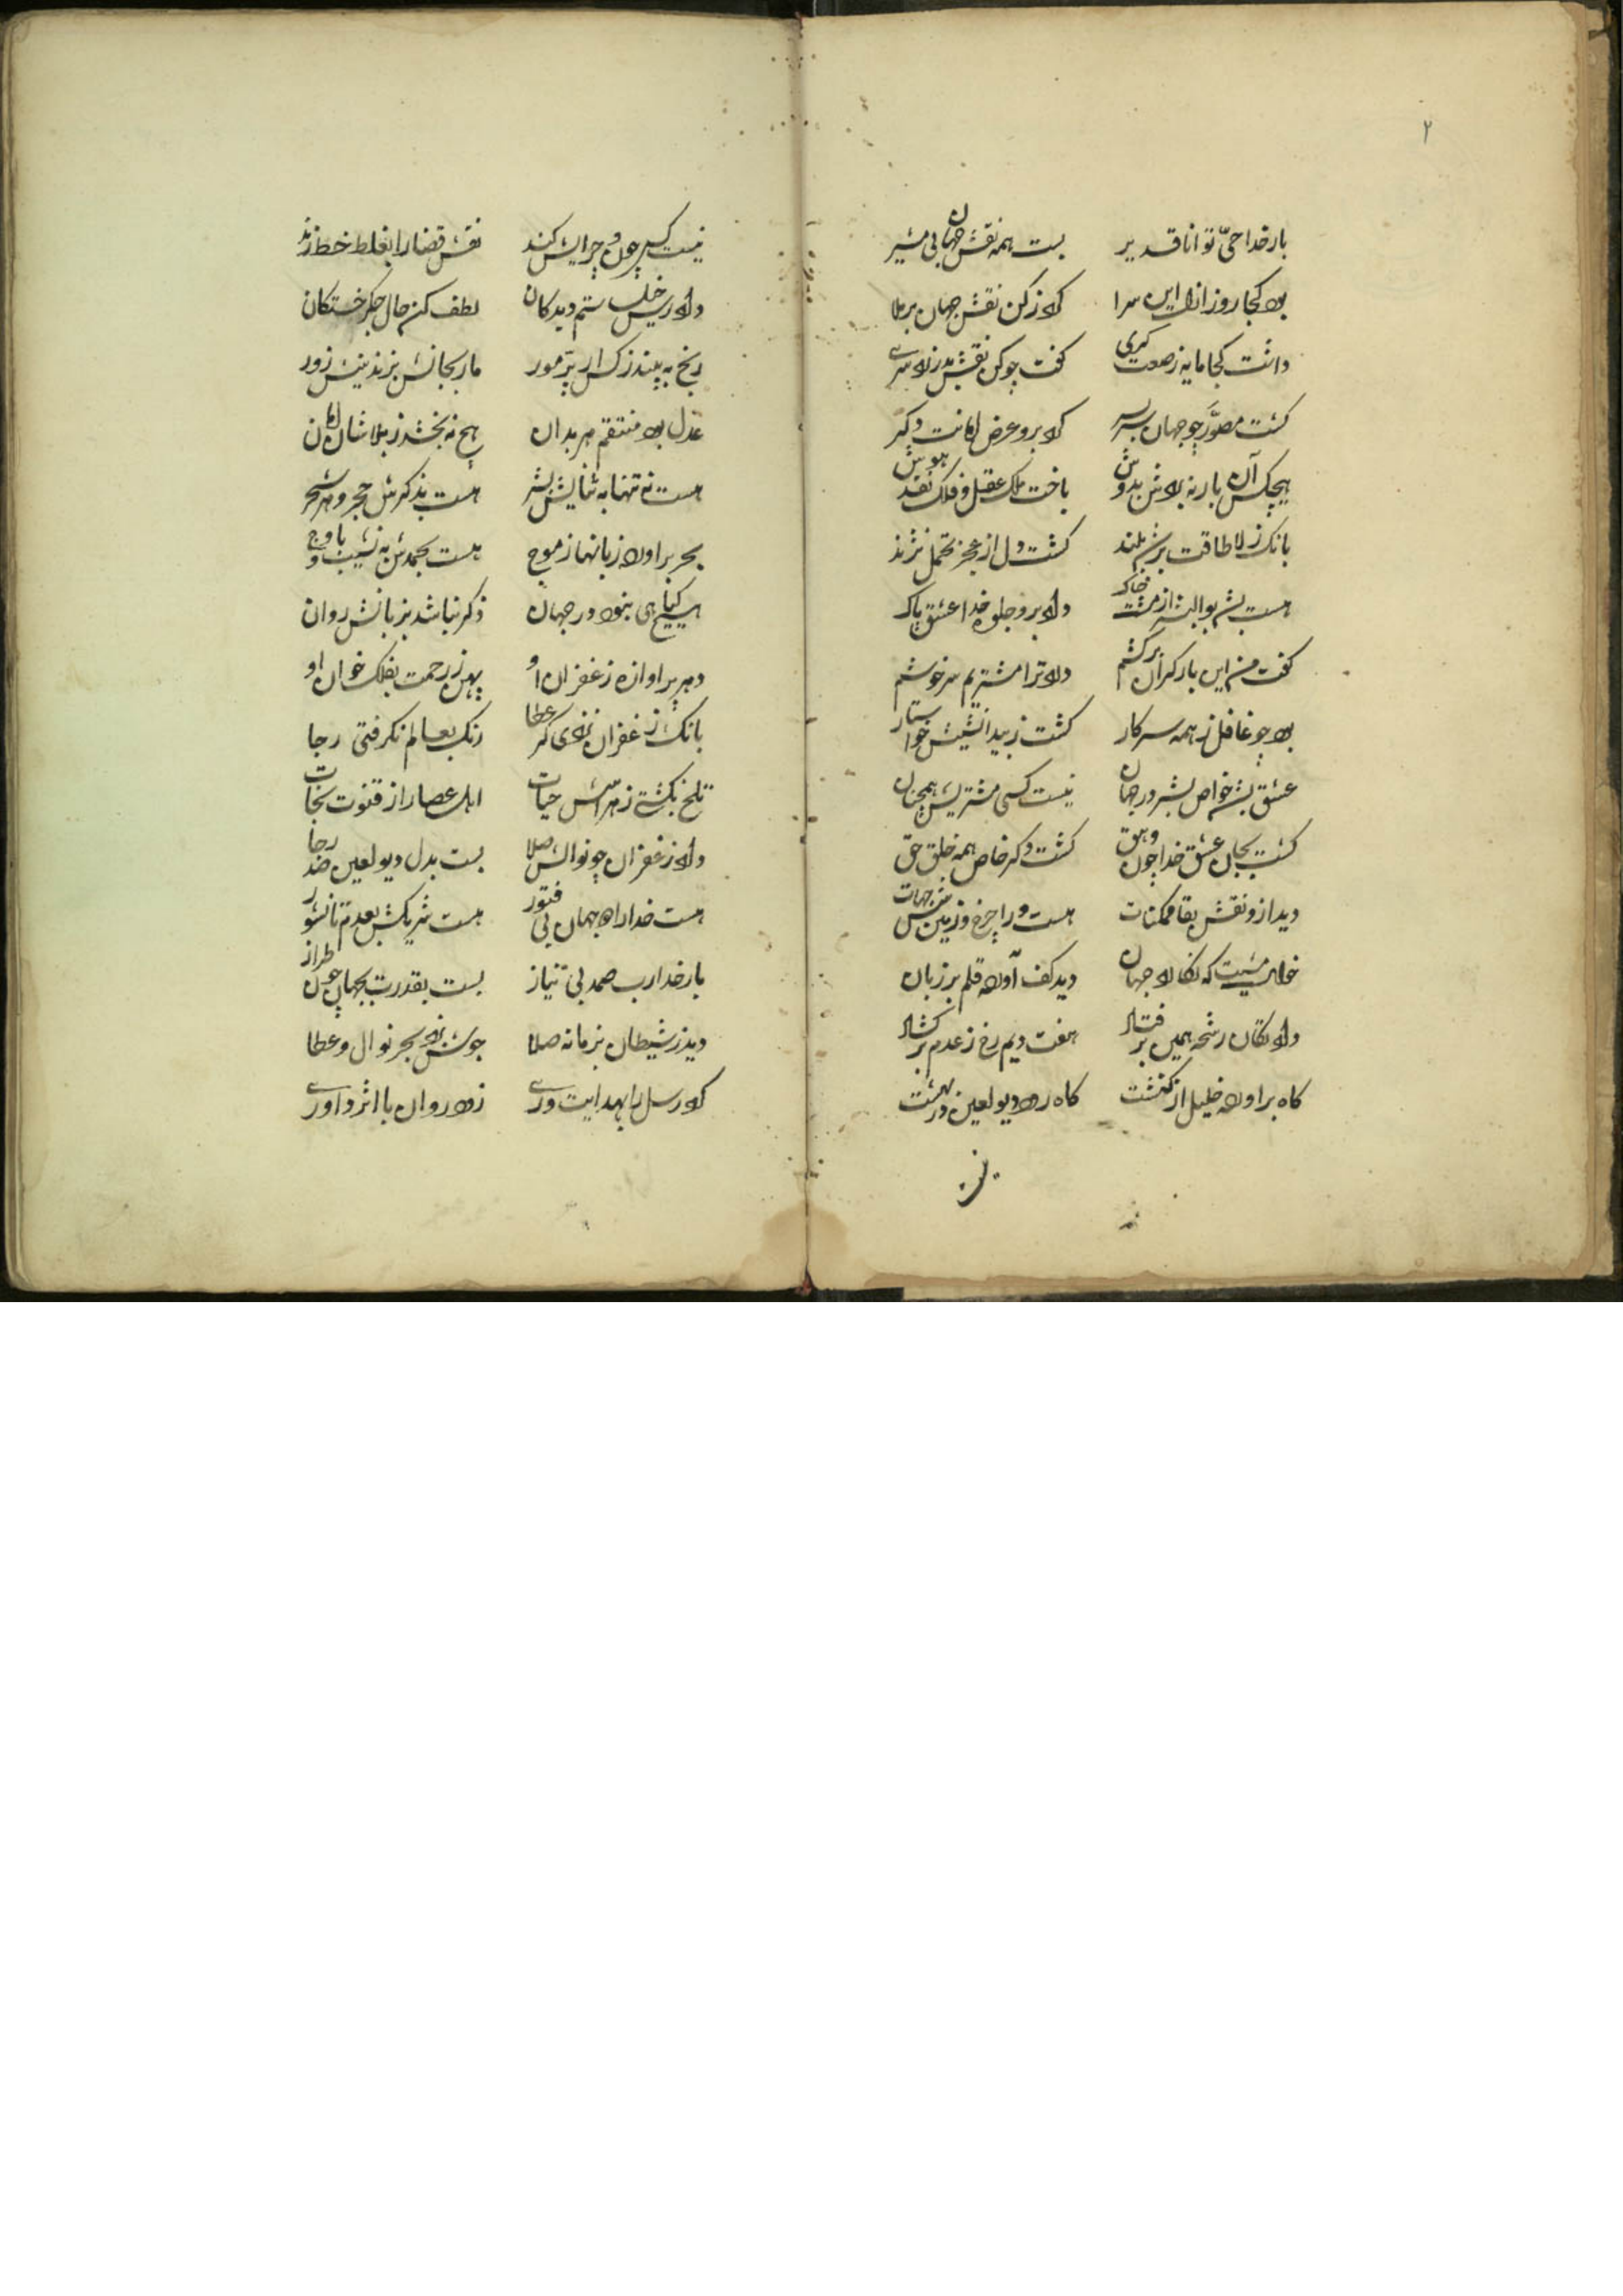 ۲
بار خدا حیّ توانا قدیر بست همه نقش جهان بی مشیر
بود کجا روز ازل این سرا کرد ز کن نقش جهان برملا
داشت کجا مایه ز صورت گری گفت چو کن نقش
گشت مصوَّر چو جهان سربسر کرد برو عرض امانت دگر
هیچکس آن بار نه بردش بدوش باخت ملک عقل و فلک نقد هوش
بانک ز لا طاقت برشم بلند گشت دل از عجز تحمل نژند
هست بشر بوالبشر از مشت خاک داد برو جلوه خدا عشق پاک
گفت من این بار گران برکشم داد ترا مشتریم سرخوشم
بود چو غافل ز همه سر کار گشت ز بیدانشیش خواستار
عشق بشر خواص بشر در جهان نیست کسی مشتریش همچنان
گشت بجان عشق خدا چون وهق گشت دگر خاص همه خلق حق
دید ازو نقش بقا ممکنات هست ورا چرخ و زمین شش جهات
مشیت که نگارد جهان دید کف آورد قلم بر زبان
داد تکان رشحه همین بر فتاد هفت و یم رخ ز عدم بر گشاد
گاه برآورد خلیل از کنشت گاه رود دیو لعین در بهشت
نیست کسی چون و چرایش کند نقش قضا را بغلط خط زند
دادرس خلق ستم دیدگان لطف کن حال جگر خستگان
رنج به بیند ز کس ار پرّ مور مار بجانش بزند نیش زور
عدل بود منتقم هر بدان هیچ نه بخشد ز بلا شان امان
هست نه تنها به ثنایش بشر هست بذکرش حجر و هر شجر
بحر برآورد زبانها ز موج هست بحمدش به نشیب و باوج
هیچ گیاهی بنود در جهان ذکر نباشد بزبانش روان
دهر پر آوازه ز غفران او پهن ز رحمت بفلک خوان او
بانک ز غفران نزدی گر عطا رنگ بعالم نگرفتی رجا
تلخ بگشتی ز هراسش حیات اهل عصا را ز قنوت نجات
داد ز غفران چو نوالش صلا بست بدل دیو لعین ضد رجا
هست خدا راه بهمان بی فتور هست شریکش بعدم تا نشور
بار خدا رب صمد بی نیاز بست بقدرت بجهان چون طراز
دید ز شیطان بزمانه صلا جوش زد بحر نوال و عطا
کرد رسل را بهدایت وری زود روان با اثر داوری